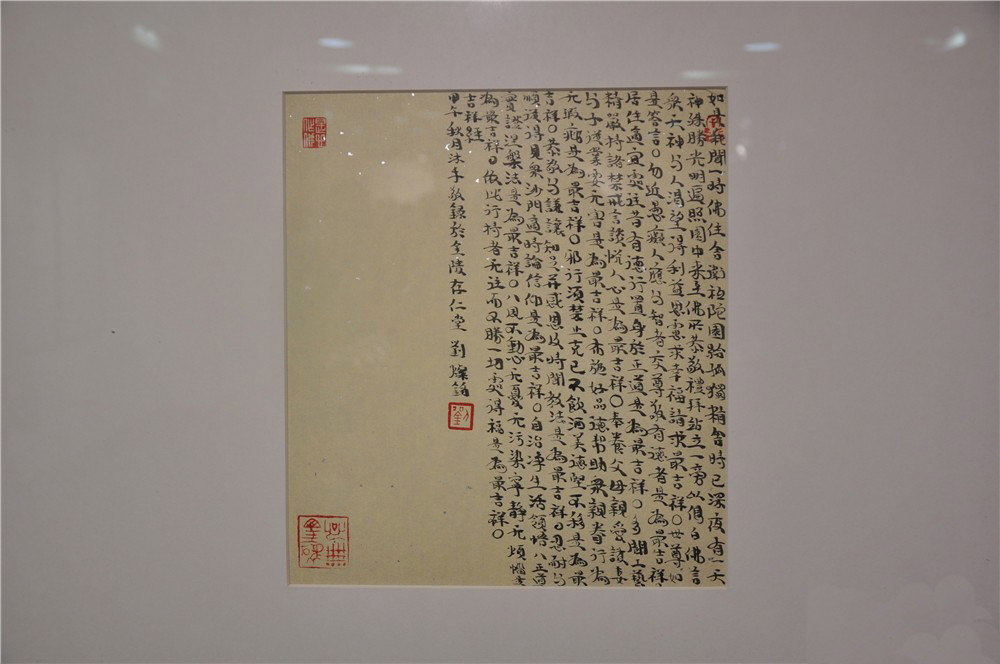 如是我聞一時佛住舍衛祇陀園給孤獨精舍時已深夜有一天
神殊勝光明遍照園中來至佛所恭敬禮拜站立一旁以偈白佛言
眾天神與人渴望得利益思慮求幸福請求最吉祥〇世尊如
是答言〇勿近愚癡人應與智者交尊敬有德者是為最吉祥〇
居住適宜處往昔有德行置身於正道是為最吉祥〇多聞工藝
精嚴持諸禁戒言談悅人心是為最吉祥〇奉養父母親愛護妻
與子從業要無害是為最吉祥〇布施好品德幫助眾親眷行為
無瑕疵是為最吉祥〇邪行須禁止克己不飲酒美德堅不移是為最
吉祥〇恭敬與謙讓知足並感恩及時聞教法是為最吉祥〇忍耐與
順從得見眾沙門適時論信仰是為最吉祥〇自治淨生活領悟八正道
實證涅槃法是為最吉祥〇八風不動心無憂無污染寧靜無煩惱是
為最吉祥〇依此行持者無往而不勝一切處得福是為最吉祥〇
吉祥經
甲午秋月沐手敬錄於金陵存仁堂 劉燦銘
劉